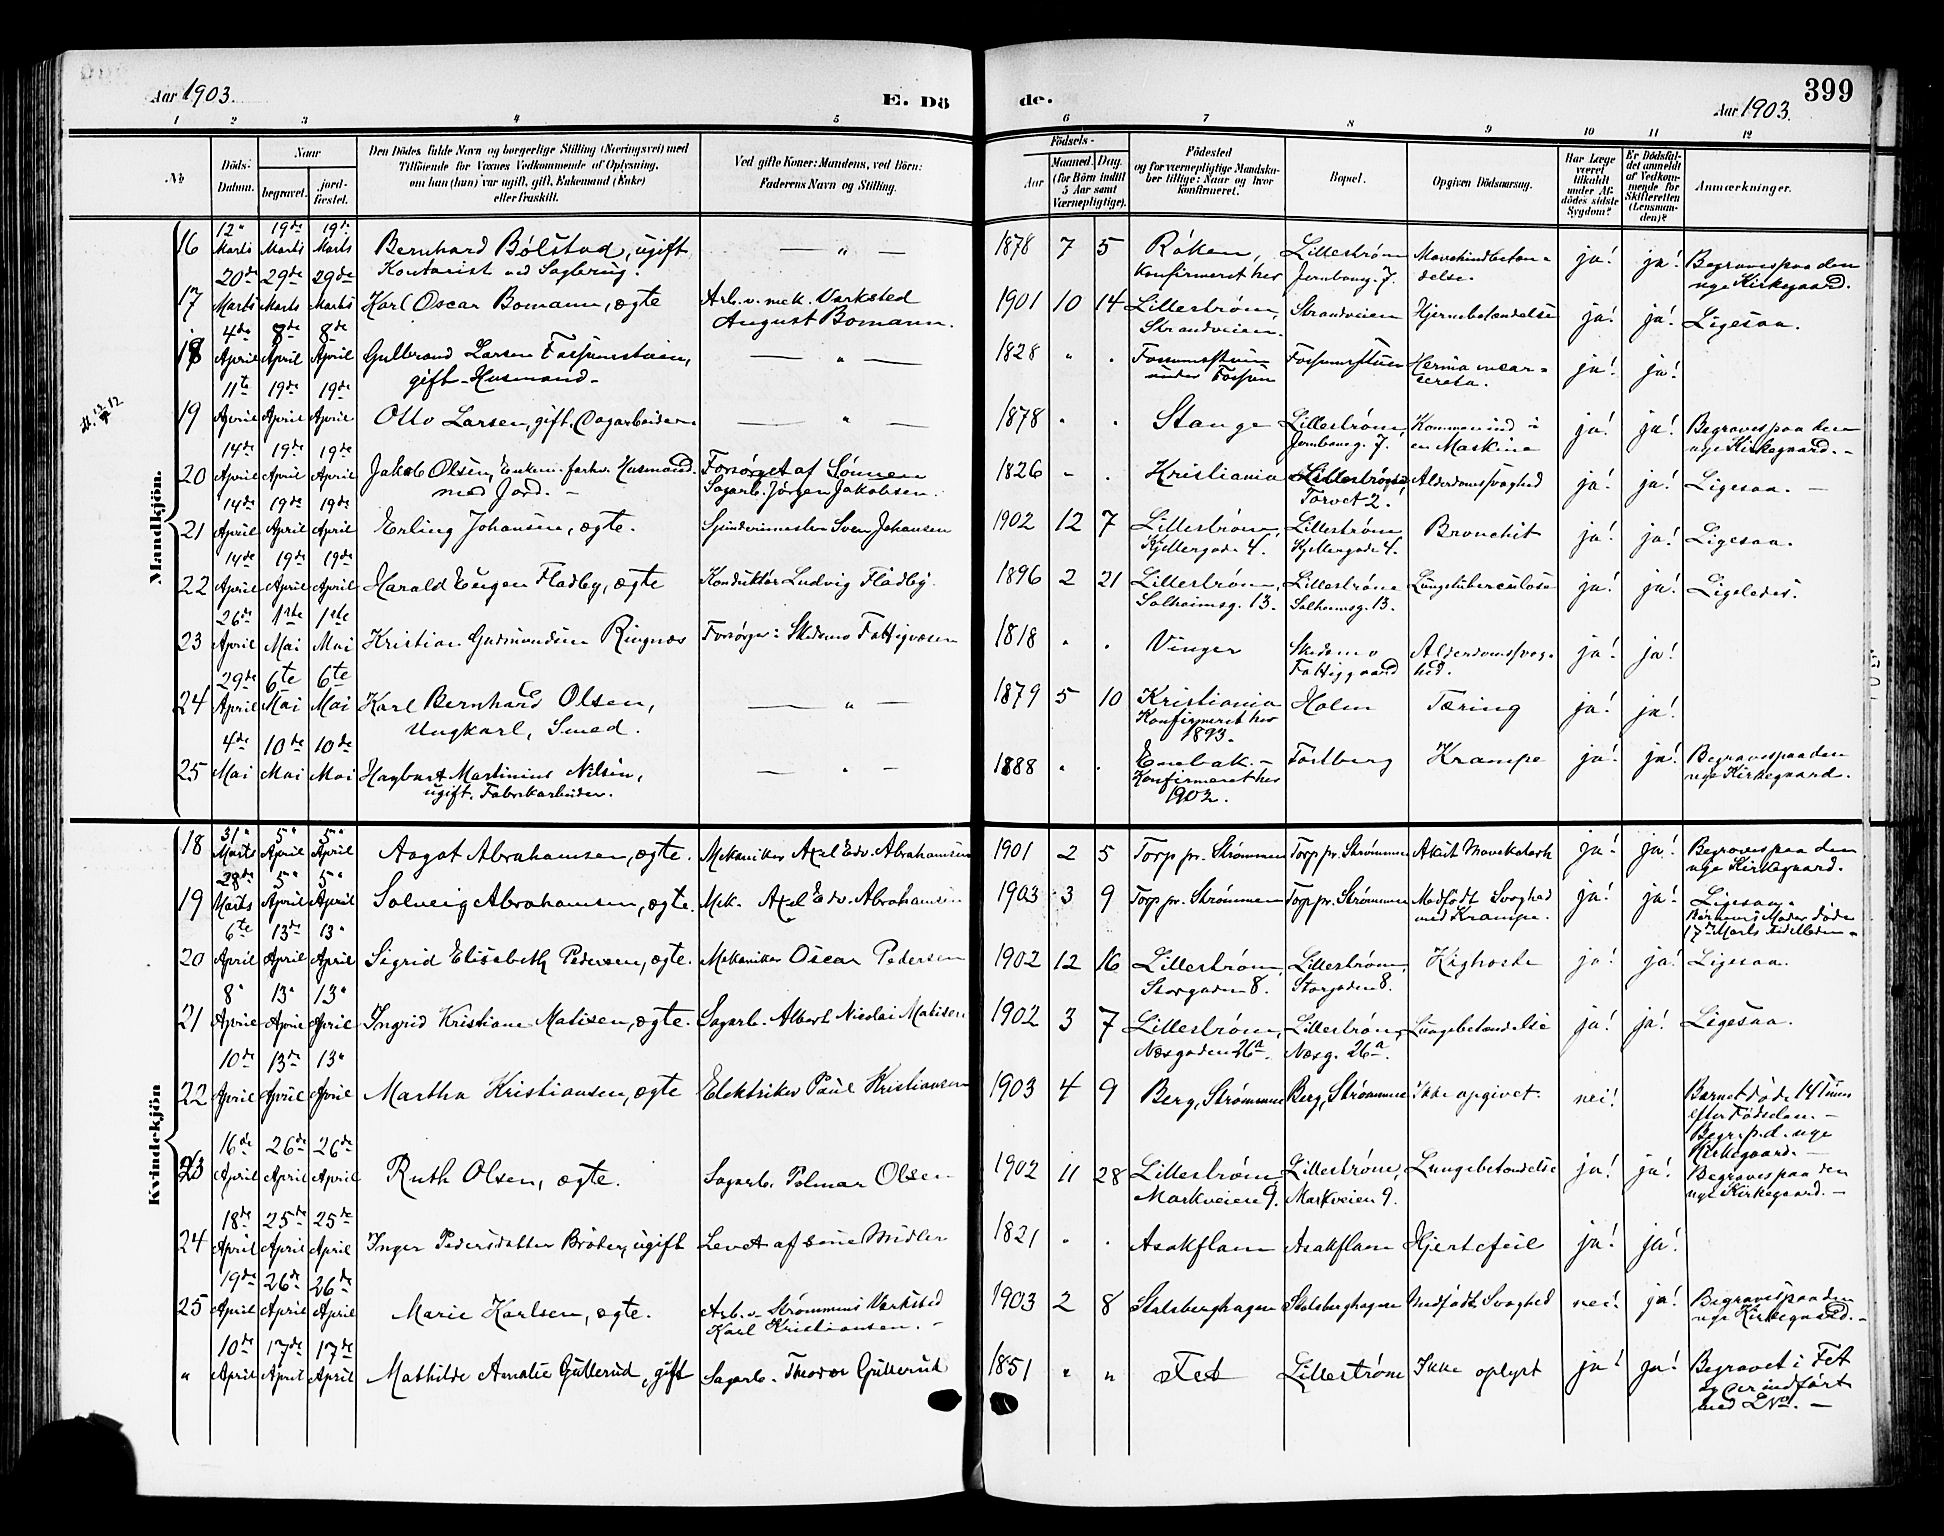 Aar 1903.
E. Dö
de.
Aar 1903.
399
1 2 3 4 5 6 7 8 9 10 11 12
No
Döds-Datum.
Naar
begravet.
jord-fæstet.
Den Dödes fulde Navn og borgerlige Stilling (Næringsvei) med
Tilföiende for Voxnes Vedkommende af Oplysning,
om han (hun) var ugift, gift, Enkemand (Enke)
eller fraskilt.
Ved gifte Koner: Mandens, ved Börn:
Faderens Navn og Stilling.
Födsels-
Aar
Maaned. Dag.
(for Börn indtil
5 Aar samt
Værnepligtige).
Födested
og for værnepligtige Mandska-
ber tillige: Naar og hvor
konfirmeret.
Bopæl.
Opgiven Dödsaarsag.
Har Læge
været
tilkaldt
under Af-
dödes sidste
Sygdom?
Er Dödsfal-
det anmeldt
af Vedkom-
mende for
Skifteretten
(Lensman-
den)?
Anmærkninger.
Mandkjön.
16 12" Marts 19de Marts 19de Marts Bernhard Bölstad, ugift Kontorist ved Sagbrug. — " — 1878 7 5 Röken, Konfirmeret her Lilleström Jernbaneg. 7. Mavehindebetændelse. ja! ja! Begravet paa den nye Kirkegaard.
17 20de Marts 29de Marts 29de Marts Karl Oscar Bomann, ægte Arb. v. mek. Værksted August Bomann. 1901 10 14 Lilleström, Strandveien. Strandveien Hjernebetændelse ja! ja! Ligesaa.
18 4de April 8de April 8de April Gulbrand Larsen Fossumstuen, gift Husmand. — " — 1828 " " Fossumstuen under Fossum Fossumstuen Hernia incarcerata. ja! ja!
19 11te April 19de April 19de April Otto Larsen, gift, Dagarbeider. — " — 1878 " " Stange Lilleström, Jernbaneg. 7. Kommen ind i en Maskine ja! ja! Begravet paa den nye Kirkegaard. —
20 14de April 19de April 19de April Jakob Olsen, Enkem. forhv. Husmand med Jord. — Forsörget af Sönnen Sagarb. Jörgen Jakobsen. 1826 " " Kristiania Lilleström Torvet 2. Alderdomssvaghed ja! ja! Ligesaa. —
21 14de April 19de April 19de April Erling Johansen, ægte. Spinderimester Sven Johansen 1902 12 7 Lilleström, Kjellergade 4. Lilleström Kjellergade 4. Bronchit ja! ja! Ligesaa.
22 14de April 19de April 19de April Harald Eugen Fladby, ægte Konduktör Ludvig Fladby. 1896 2 21 Lilleström, Solheimsg. 13. Lilleström Solheimsg. 13. Lungetuberculose ja! ja! Ligeledes.
23 26de April 1ste Mai 1ste Mai Kristian Gudmundsen Ringnæs Forsörges: Skedsmo Fattigvæsen 1818 " " Vinger Skedsmo Fattiggaard Alderdomssvaghed. ja! ja!
24 29de April 6te Mai 6te Mai Karl Bernhard Olsen, Ungkarl, Smed. — " — 1879 5 10 Kristiania Konfirmeret her 1893. Holm Tæring ja! ja!
25 4de Mai 10de Mai 10de Mai Hagbart Martinius Nilsen, ugift. Fabrikarbeider. — " — 1888 " " Enebak. — Konfirmeret her 1902. Krampe ja! ja! Begravet paa den nye Kirkegaard.
Kvindekjön
18 31" Marts 5" April 5" April Aagot Abrahamsen, ægte. Mekaniker Axel Edv. Abrahamsen 1901 2 5 Torp pr. Strömmen Torp pr. Strömmen Akut Mavekatarh ja! ja! Begravet paa den nye Kirkegaard.
19 28de Marts 5" April 5" April Solveig Abrahamsen, ægte. Mek. Axel Edv. Abrahamsen 1903 3 9 Torp pr. Strömmen Torp pr. Strömmen Medfödt Svaghed med Krampe. ja! ja! Ligesaa. Barnets Moder döde 17" Marts
20 6te April 13de April 13" April Sigrid Elisabeth Pedersen, ægte. Mekaniker Oscar Pedersen 1902 12 16 Lilleström, Storgaden 8. Lilleström, Storgaden 8. Kighoste ja! ja! Ligesaa.
21 8" April 13" April 13" April Ingrid Kristiane Matisen, ægte. Sagarb. Albert Nicolai Matisen 1902 3 7 Lilleström, Næsgaden 26a. Lilleström, Næsg. 26a. Lungebetændelse ja! ja! Ligesaa.
22 10de April 13de April 13" April Martha Kristiansen, ægte Elektriker Paul Kristiansen 1903 4 9 Berg, Strömmen Berg, Strömmen Ikke opgivet. nei! Barnet döde 14 Timer efter Födselen. — Begr. p. d. nye Kirkegaard. —
23 16de April 26de April 26de April Ruth Olsen, ægte. Sagarb. Polmar Olsen 1902 11 28 Lilleström Markveien 9. Lilleström, Markveien 9. Lungebetændelse ja! ja! Begravet paa den nye Kirkegaard. —
24 18de April 25de April 25de April Inger Pedersdatter Bröter, ugift Levet af sine Midler 1821 " " Asakflam Asakflam Hjertefeil ja! ja!
25 19de April 26de April 26de April Marie Karlsen, ægte. Arb. v. Strömmens Værksted Karl Kristiansen. — 1903 2 8 Stalsberghagen Stalsberghagen Medfödt Svaghed nei! ja! Begravet paa den nye Kirkegaard. —
" 10de April 17de April 17de April Mathilde Amalie Gutterud, gift Sagarb. Theodor Gutterud 1851 " " Fet Lilleström Ikke oplyst ja! ja! Begravet i Fet og der indfört med No. —